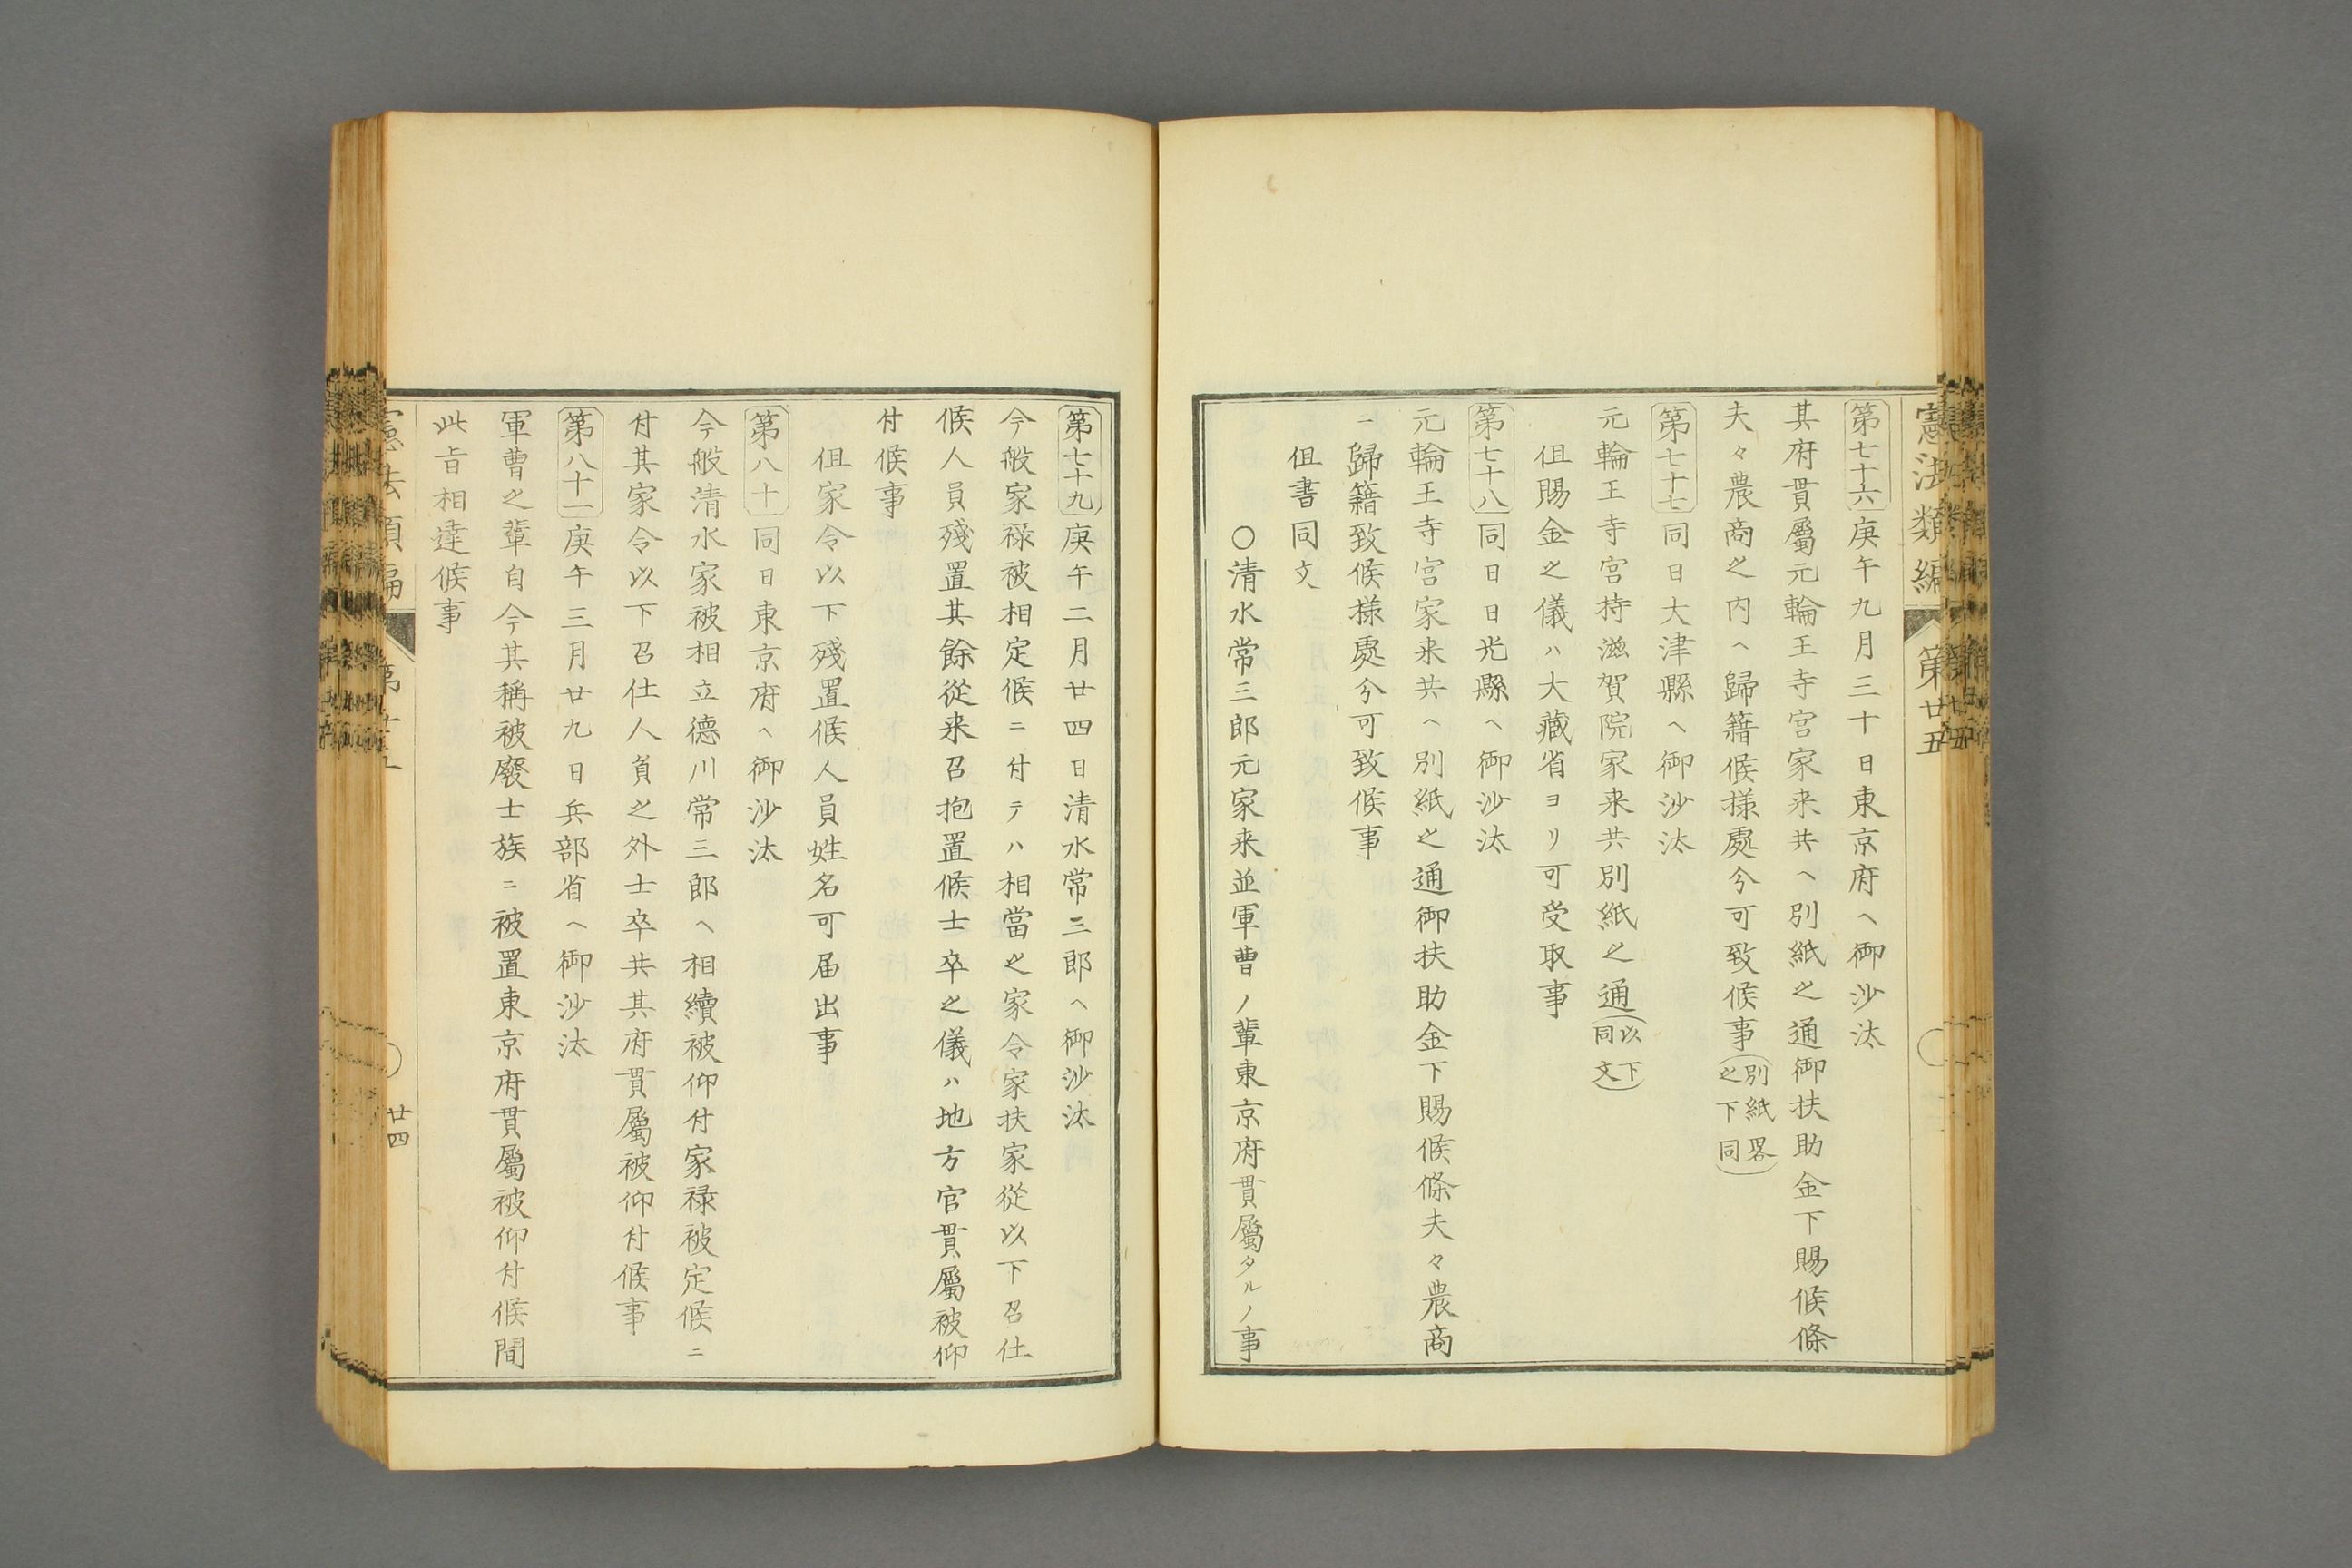 憲法類編 第廿五
第七十六 庚午九月三十日東京府ヘ御沙汰
其府貫屬元輪王寺宮家来共ヘ別紙之通御扶助金下賜候條
夫々農商之内ヘ歸籍候様處分可致候事(別紙畧之下同)
第七十七 同日大津縣ヘ御沙汰
元輪王寺宮持滋賀院家来共別紙之通(以下同文)
但賜金之儀ハ大藏省ヨリ可受取事
第七十八 同日日光縣ヘ御沙汰
元輪王寺宮家来共ヘ別紙之通御扶助金下賜候條夫々農商
ニ歸籍致候様處分可致候事
但書同文
○清水常三郎元家来並軍曹ノ輩東京府貫屬タルノ事
第七十九 庚午二月廿四日清水常三郎ヘ御沙汰
今般家禄被相定候ニ付テハ相當之家令家扶家從以下召仕
候人員殘置其餘從来召抱置候士卒之儀ハ地方官貫屬被仰
付候事
但家令以下殘置候人員姓名可届出事
第八十 同日東京府ヘ御沙汰
今般清水家被相立德川常三郎ヘ相續被仰付家禄被定候ニ
付其家令以下召仕人負之外士卒共其府貫屬被仰付候事
第八十一 庚午三月廿九日兵部省ヘ御沙汰
軍曹之輩自今其稱被廢士族ニ被置東京府貫屬被仰付候間
此旨相達候事
廿四